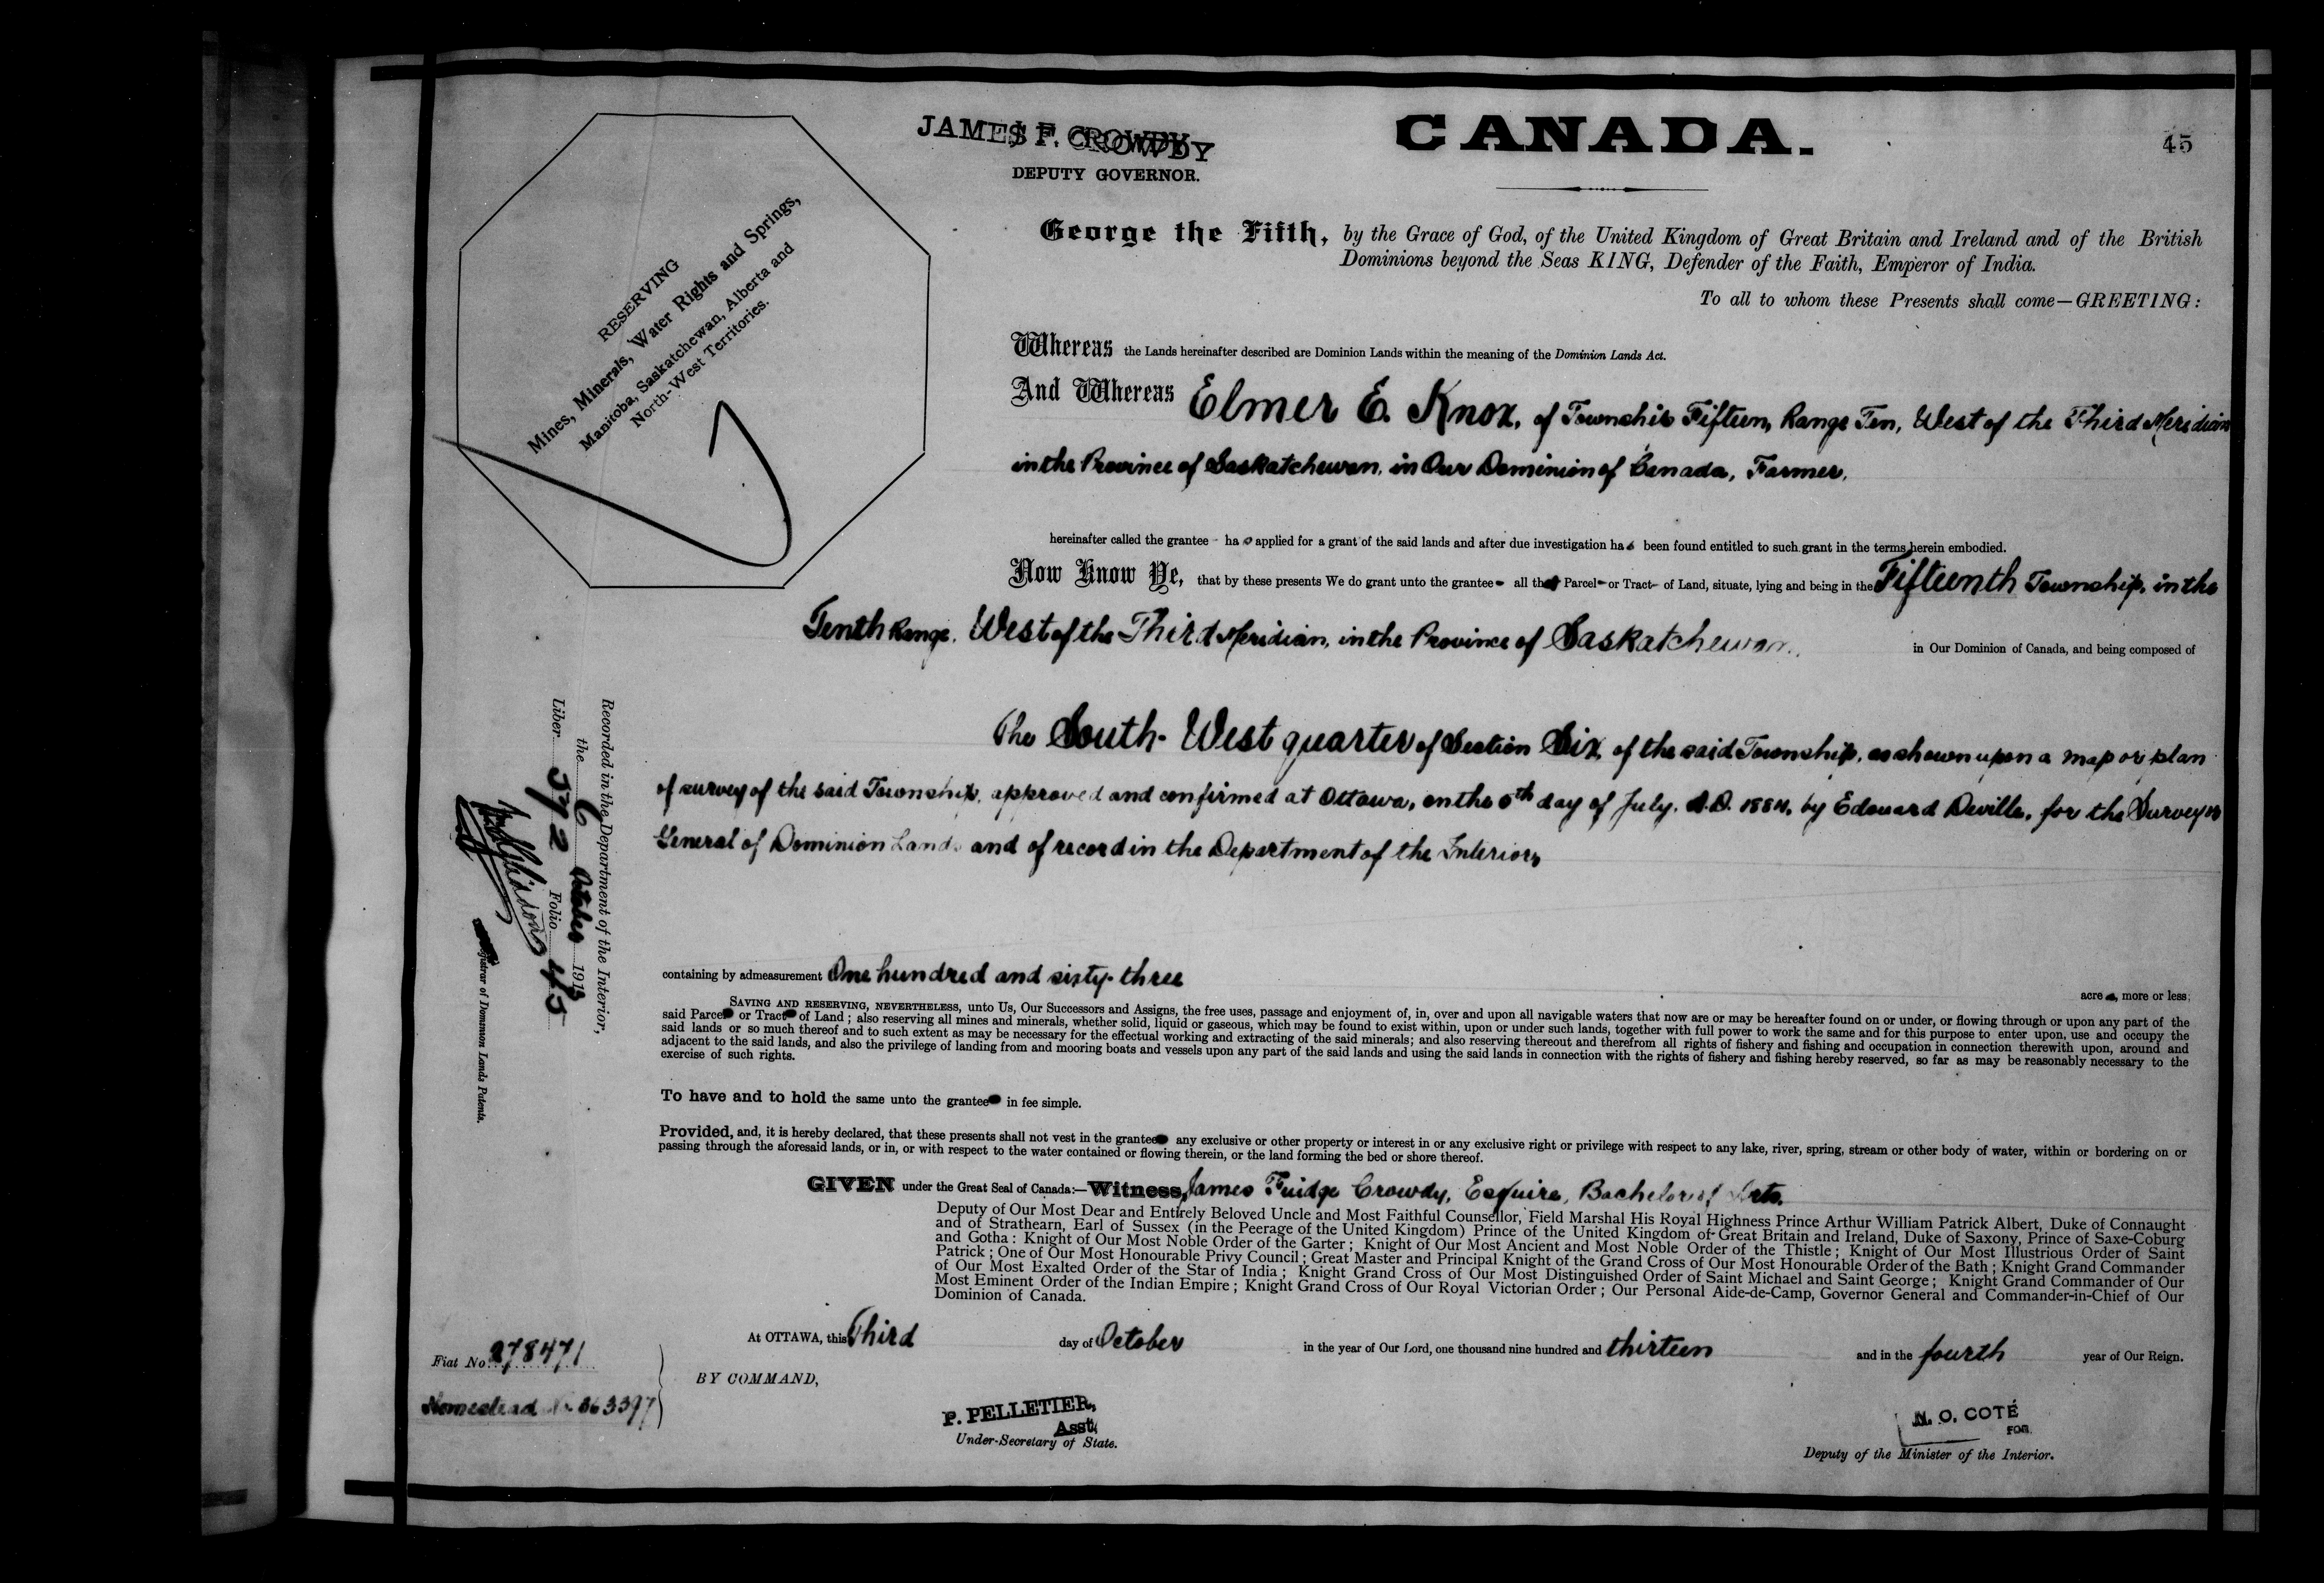 JAMES F. CROWDY
DEPUTY GOVERNOR.
CANADA.
45
RESERVING
Mines, Minerals, Water Rights and Springs,
Manitoba, Saskatchewan, Alberta and
North-West Territories.
George the Fifth, by the Grace of God, of the United Kingdom of Great Britain and Ireland and of the British
Dominions beyond the Seas KING, Defender of the Faith, Emperor of India.
To all to whom these Presents shall come—GREETING:
Whereas the Lands hereinafter described are Dominion Lands within the meaning of the Dominion Lands Act.
And Whereas Elmer E. Knox, of Township Fifteen, Range Ten, West of the Third Meridian
in the Province of Saskatchewan, in Our Dominion of Canada, Farmer,
hereinafter called the grantee - has applied for a grant of the said lands and after due investigation has been found entitled to such grant in the terms herein embodied.
Now Know Ye, that by these presents We do grant unto the grantee- all that Parcel- or Tract- of Land, situate, lying and being in the Fifteenth Township, in the
Tenth Range, West of the Third Meridian, in the Province of Saskatchewan, in Our Dominion of Canada, and being composed of
The South-West quarter of Section Six, of the said Township, as shown upon a map or plan
of survey of the said Township, approved and confirmed at Ottawa, on the day of July, A.D. 1884, by Edouard Deville, for the Surveyor
General of Dominion Lands and of record in the Department of the Interior,
containing by admeasurement One hundred and sixty-three acres, more or less;
SAVING AND RESERVING, NEVERTHELESS, unto Us, Our Successors and Assigns, the free uses, passage and enjoyment of, in, over and upon all navigable waters that now are or may be hereafter found on or under, or flowing through or upon any part of the
said Parcel or Tract of Land; also reserving all mines and minerals, whether solid, liquid or gaseous, which may be found to exist within, upon or under such lands, together with full power to work the same and for this purpose to enter upon, use and occupy the
said lands or so much thereof and to such extent as may be necessary for the effectual working and extracting of the said minerals; and also reserving thereout and therefrom all rights of fishery and fishing and occupation in connection therewith upon, around and
adjacent to the said lands, and also the privilege of landing from and mooring boats and vessels upon any part of the said lands and using the said lands in connection with the rights of fishery and fishing hereby reserved, so far as may be reasonably necessary to the
exercise of such rights.
To have and to hold the same unto the grantee in fee simple.
Provided, and, it is hereby declared, that these presents shall not vest in the grantee any exclusive or other property or interest in or any exclusive right or privilege with respect to any lake, river, spring, stream or other body of water, within or bordering on or
passing through the aforesaid lands, or in, or with respect to the water contained or flowing therein, or the land forming the bed or shore thereof.
GIVEN under the Great Seal of Canada:—Witness, James Fuidge Crowdy, Esquire, Bachelor of Arts,
Deputy of Our Most Dear and Entirely Beloved Uncle and Most Faithful Counsellor, Field Marshal His Royal Highness Prince Arthur William Patrick Albert, Duke of Connaught
and of Strathearn, Earl of Sussex (in the Peerage of the United Kingdom) Prince of the United Kingdom of Great Britain and Ireland, Duke of Saxony, Prince of Saxe-Coburg
and Gotha: Knight of Our Most Noble Order of the Garter; Knight of Our Most Ancient and Most Noble Order of the Thistle; Knight of Our Most Illustrious Order of Saint
Patrick; One of Our Most Honourable Privy Council; Great Master and Principal Knight of the Grand Cross of Our Most Honourable Order of the Bath; Knight Grand Commander
of Our Most Exalted Order of the Star of India; Knight Grand Cross of Our Most Distinguished Order of Saint Michael and Saint George; Knight Grand Commander of Our
Most Eminent Order of the Indian Empire; Knight Grand Cross of Our Royal Victorian Order; Our Personal Aide-de-Camp, Governor General and Commander-in-Chief of Our
Dominion of Canada.
At OTTAWA, this Third day of October in the year of Our Lord, one thousand nine hundred and thirteen and in the fourth year of Our Reign.
BY COMMAND,
P. PELLETIER,
Asst.
Under-Secretary of State.
N. O. COTÉ
FOR
Deputy of the Minister of the Interior.
Fiat No. 278471
Homestead No 363397
Recorded in the Department of the Interior,
the 6 October 1913
Liber 572 Folio 45
Registrar of Dominion Lands Patents.